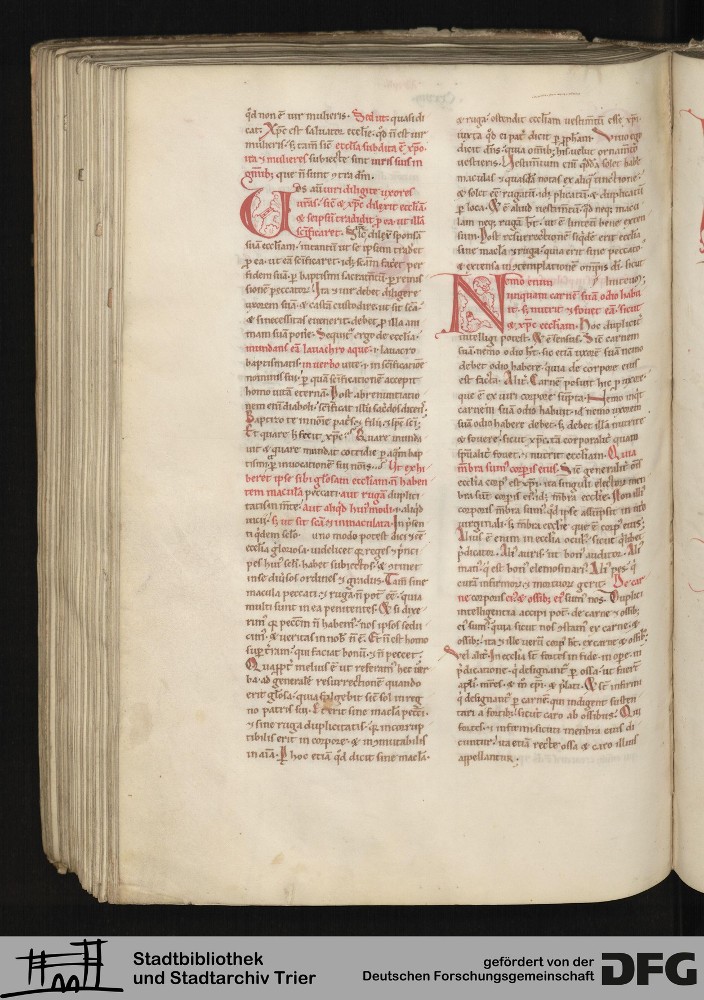 qd non ē uir mulieris. Sed ut quasi di
cat. Xpc est saluator ecclie. qd n̄ est uir
mulieris. s; tam̄ sic̄ ecclia subdita ē xpo.
ita ⁊ mulieres subiecte sint uiris suis in
om̄ib; que n̄ sunt ɔtra dm̄.
Uos aū uiri diligite uxores
ur̄as. sic̄ & xpc dilexit eccliā.
& seipsū tradidit p ea. ut illā
sc̄ificaret. Sic dilex sponsā
suā eccliam. intantū ut se ipsum tradet
p ea. ut eā sc̄ificaret. id; sc̄am facet per
fidem suā. p baptismi sacramtū. p remis
sionē peccator. Ita ⁊ uir debet diligere
uxorem suā. & castā custodire. ut sit sc̄a.
& si necessitas euenerit. debet p illa ani
mam suā pone. Sequit ergo de ecclia.
mundans eā lauachro aque. ⁊ lauacro
baptismatis. in uerbo uite. ⁊ in sc̄ificatiōe
nominis sui. p quā sc̄ificationē accepit
homo uitā eternā. Post abrenuntiatio
nem eni diaboli. sc̄ificat illū sacdos dicens.
Baptizo te in noīe patris & filii ⁊ sps sc̄i.
Et quare h fecit xpc. Quare munda
uit & quare mundat cotidie p aqm bap
tism. p inuocationē sui nōis. Ut exhi
beret ipse sibi gl'osam eccliam n̄ haben
tem maculā peccati. aut rugā duplici
tatis in mte. aut aliqd hui modi. ⁊ aliqd
uicii. s; ut sit sc̄a & inmaculata. In psen
ti qdem sclo uno modo potest dici ee
ecclia gloriosa. uidelicet qa reges & pnci
pes hui scli habet subiectos. & ornet
inse diuisos ordines & gradus. Tam̄ sine
macula peccati. & ruga n̄ pot ee. quia
multi sunt in ea penitentes. Qd si dixe
rim qa peccm̄ n̄ habem. nos ipsos sedu
cim. & ueritas in nob n̄ ē. Et n̄ est homo
sup tram. qui faciat bonū. & n̄ peccet.
Quappt melius ē ut referam hec uer
ba ad generalē resurrectionē quando
erit glosa. quia fulgebit sic̄ sol in reg
no patris sui. Et erit sine macla pecci
⁊ sine ruga duplicitatis. qa incorrup
tibilis erit in corpore. & inmutabilis
in aīa. P hoc etiā qd dicit sine macla.
& ruga. ostendit eccliam uestimtū esse xpi.
iuxta qd ei pat dicit p ppham. Viuo ego
dicit dns. quia omib; his uelut ornamto
uestieris. Vestimtum eni qdda solet habe
maculas ⁊ quasda notas ex aliq tinctione.
& solet ee rugatū. id; plicatū. & duplicatū
p loca. Qd ē aliud uestimtū. qd neq; macu
lam neq; rugā h;. ut ē linteū bene exten
sum. Post resurrectionē siqde erit ecclia
sine macla & ruga. quia erit sine peccato
& extensa in ɔtemplationē omips di. sicut
linteū.
Nemo enim
nunquam carnē suā odio habu
it. s; nutrit ⁊ fouet eā. sicut
& xpc eccliam. Hoc duplicit
intelligi potest. Qd ē sensus. Sic carnem
suā nemo odio ht. sic etiā uxorē suā nemo
debet odio habere. quia de corpore eius
est facta. Alit. Carnē posuit hic p uxore.
que ē ex uiri corpore supta. Nemo inqt
carnem suā odio habuit. id; nemo uxorem
suā odio habere debet. s; debet illā nutrire
& fouere. sicut xpc tā corporalit quam
spualit fouet. ⁊ nutrit eccliam. Quia
mbra sum corpis eius. Sic generalit om̄s
ecclia corp est xpi. ita singuli electoru mem
bra sunt corpis ei. id; mbra ecclie. Non illi
corporis mbra sum qd ipse assupsit in utō
uirginali. s; mbra ecclie que ē corp eius.
Alius ē enim in ecclia ocul. sicut qlibet
pdicator. Ali auris. ut bon auditor. Ali
man. qi est bon elemosinari. Ali pes. qi
curā infirmor. & mortuor gerit. De car
ne corporis ei. & ossib; ei sum nos. Duplici
intelligentia accipi pot. de carne & ossib;
ei sum. quia sicut nos ɔstam ex carne. &
ossib; ita & ille ueru corp ht. ex carne & ossib;
Vel alit. In ecclia st fortes in fide. in ope. in
pdicatione. qi designant p ossa. ut fuert
apli. mres. & m̄ epi. & plati. & st infirmi
qi designant p carnē. qui indigent susten
tari a fortib; sicut caro ab ossibus. Qui
fortes. ⁊ infirmi. sicut menbra eius di
cuntur. ita etiā recte ossa & caro illius
appellantur.
Stadtbibliothek
und Stadtarchiv Trier
gefördert von der
Deutschen Forschungsgemeinschaft
DFG